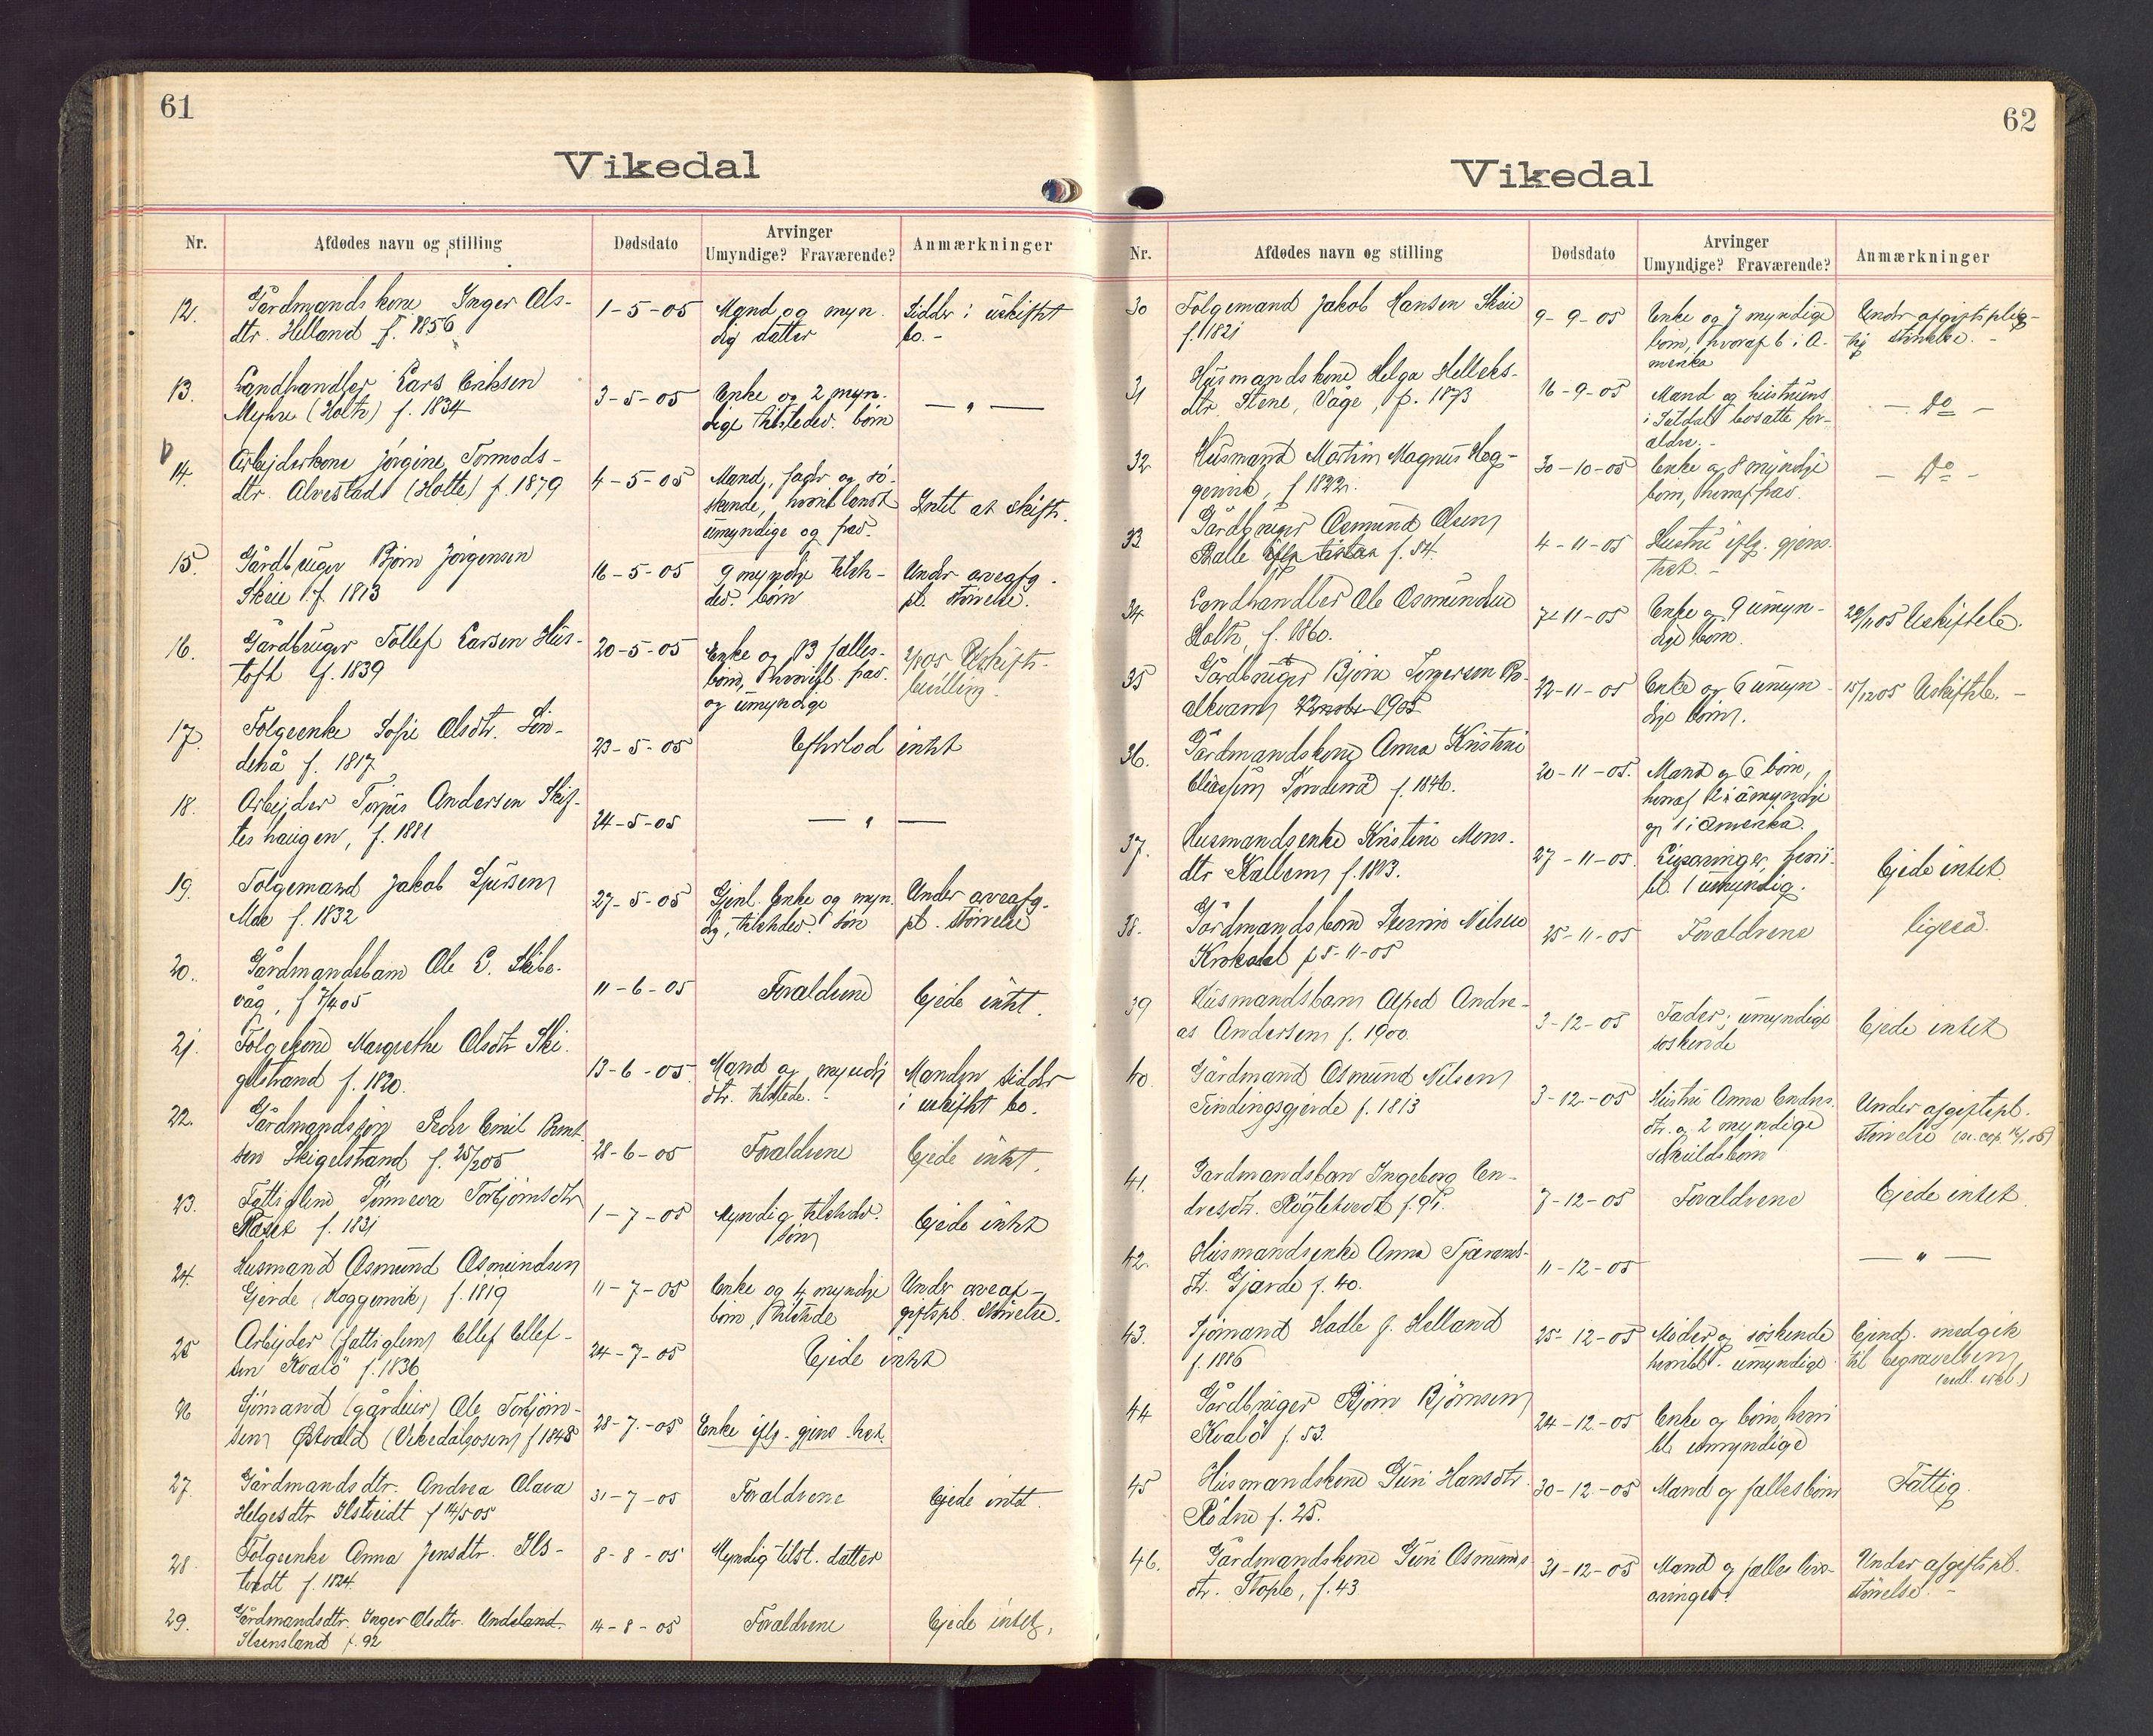 61
Vikedal
Nr.
Afdødes navn og stilling
Dødsdato
Arvinger
Umyndige? Fraværende?
Anmærkninger
12.
Gårdmandskone Inger Ols-
dtr. Helland f. 1856
1-5-05
Mand og myn.
dig datter
Sidder i uskiftet
bo. -
13.
Landhandler Lars Eriksen
Myhre (Holte) f. 1834
3-5-05
Enke og 2 myn.
dige tilstedev. børn
— " —
14.
Arbejderkone Jørgine Tormods-
dtr. Alvestad (Holte) f. 1879
4-5-05
Mand, fader og sø-
skende, hvoriblandt
umyndige og frav.
Intet at skifte.
15.
Gårdbruger Bjørn Jørgensen
Skeie f. 1813
16-5-05
9 myndige tilste-
dev. børn
Under arveafg.
pl. størrelse.
16.
Gårdbruger Tollef Larsen Hus-
toft f. 1839
20-5-05
Enke og 13 fælles-
børn, hvoribl. frav.
og umyndige
Uskifte-
bevilling.
17.
Følgeenke Sofie Olsdtr. Søn-
denå f. 1817
23-5-05
Efterlod intet
18.
Arbejder Torjus Andersen Skif-
teshaugen, f. 1881
24-5-05
— " —
19.
Følgemand Jakob Sjursen
Moe f. 1832
27-5-05
Gjenl. Enke og myn.
dig, tilstedev. søn
Under arveafg.
pl. størrelse
20.
Gårdmandsbarn Ole E. Skibe-
våg, f 7/4 05
11-6-05
Forældrene
Ejede intet.
21.
Følgekone Margrethe Olsdtr. Ski-
gelstrand f. 1820.
13-6-05
Mand og myndig
dtr. tilstede. -
Manden sidder
i uskiftet bo.
22.
Gårdmandssøn Peder Emil Bernt-
sen Skigelstrand f. 25/2 05
28-6-05
Forældrene
Ejede intet.
23.
Fattiglem Sønneva Torbjørnsdtr.
f. 1831
1-7-05
Myndig tilstedev.
søn
Ejede intet
24.
Husmand Osmund Osmundsen
Gjerde (Høggenvik) f. 1819
11-7-05
Enke og 4 myndige
børn, tilstede
Under arveaf-
giftspl. størrelse.
25
Arbejder (fattiglem) Ellef Ellef-
sen Kvalø f. 1836
24-7-05
Ejede intet
26
Sjømand (gårdeier) Ole Torbjørn-
sen Østvold (Vikedalsosen) f 1848
28-7-05
Enke iflg. gjens. test.
27.
Gårdmandsdtr. Andrea Olava
Helgesdtr Ilstveidt f 14/5 05
31-7-05
Forældrene
Ejede intet.
28.
Følgeenke Anna Jensdtr. Ils-
tvedt f. 1824.
8-8-05
Myndig tilst. datter
29.
Gårdmandsdtr. Inger Olsdtr. Undeland.
f. 92
14-8-05
Forældrene
Ejede intet.
62
Vikedal
Nr.
Afdødes navn og stilling
Dødsdato
Arvinger
Umyndige? Fraværende?
Anmærkninger
30
Følgemand Jakob Hansen Skeie
f. 1821
9-9-05
Enke og 7 myndige
børn, hvoraf 6 i A-
merika
Under afgiftsplig-
tig størrelse. -
31
Husmandskone Helga Helleks-
dtr. Stene, Våge, f. 1873
16-9-05
Mand og hustruens
i Suldal bosatte for-
ældre. -
— Do —
32
Husmand Martin Magnus Høg-
genvik, f 1822.
30-10-05
Enke og 8 myndige
børn, hvoraf frav.
— Do —
33
Gårdbruger Osmund Olsen
f. 54.
4-11-05
Hustru iflg. gjens.
test. -
34
Landhandler Ole Osmundsen
Holte, f. 1860.
7-11-05
Enke og 9 umyn-
dige børn.
Uskiftebev.
35
Gårdbruger Bjørn Torgersen Ro-
alkvam 1905
22-11-05
Enke og 6 umyn-
dige børn.
15/12 05 Uskiftebev. -
36.
Gårdmandskone Anna Kristine
Søndenå f. 1846.
20-11-05.
Mand og 6 børn,
heraf 2 umyndige
og 1 i Amerika.
37.
Husmandsenke Kristine Mons-
dtr. Kallem f. 1813.
27-11-05.
Livsarvinger, hvori-
bl. 1 umyndig.
Ejede intet.
38.
Gårdmandsbarn Nilsen
Krokedal f 5-11-05
25-11-05
Forældrene
ligeså.
39
Husmandsbarn Alfred Andre-
as Andersen f. 1900.
3-12-05
Fader, umyndige
søskende
Ejede intet
40.
Gårdmand Osmund Nilsen
Tindingsgjerde f. 1813
3-12-05
Hustru Anna Endres-
dtr. og 2 myndige
Under afgiftspl.
størrelse
41.
Gårdmandsbarn Ingeborg En-
dresdtr. Røgletvedt f. 95.
7-12-05
Forældrene
Ejede intet.
42.
Husmandsenke Anna Tjærands-
dtr. Gjærde f. 40.
11-12-05
— " —
43.
Sjømand Hadle J. Helland
f. 1886
25-12-05
Moder og søskende
hvoribl. umyndige
Ejend. medgik
til begravelsen
44
Gårdbruger Bjørn Bjørnsen
Kvalø f. 53.
24-12-05
Enke og børn, hvori
bl. umyndige
45
Husmandskone Guri Hansdtr.
Rødne f. 25.
30-12-05
Mand og fællesbørn
Fattig.
46.
Gårdmandskone Guri Osmunds
dtr. Stople, f. 43
31-12-05
Mand og fælles livs-
arvinger
Under afgiftspl.
størrelse. -